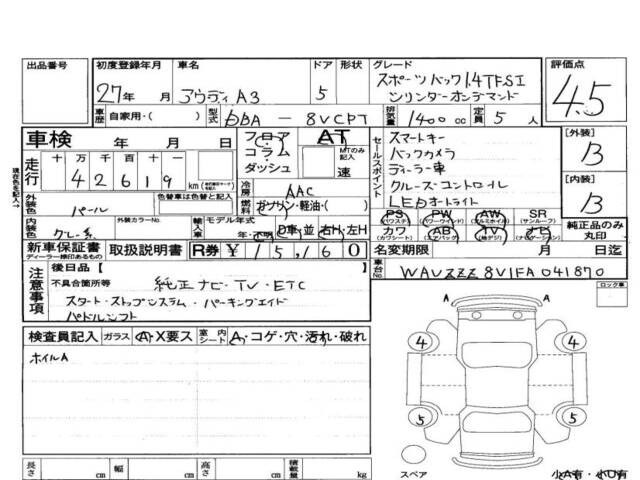 出品番号
初度登録年月 車名 ドア 形状 グレード 評価点
27年 月 アウディA3 5 スポーツバック1.4TFSI
シリンダーオンデマンド
4.5
車歴 自家用・( ) 型式 DBA - 8VCPT 排気量 1400cc 定員 5人
車検 年 月 日
フロア コラム・ダッシュ AT MTのみ記入 速
走行 十 万 千 百 十 一
4 2 6 1 9 km
現在色を記入→
冷房 AAC
外装色 パール 色替車は色替と記入
燃料 ガソリン・軽油・( )
内装色 グレー系 外装カラーNo. 輸入車 モデル年式 年・不明 D車・並 右H・左H
セールスポイント
スマートキー
バックカメラ
ディーラー車
クルーズコントロイル
LEDオートライト
PS (パワステ) PW (パワーウインド) AW (アルミホイル) SR (サンルーフ)
カワ (カワシート) AB (エアバッグ) TV (地デジ) ナビ (ナビゲーション)
純正品のみ丸印
[外装]
B
[内装]
B
新車保証書 ディーラー捺印あるもの 取扱説明書 R券 ¥15,160
名変期限 月 日迄
注意事項
後日品[ ]
不具合箇所等
純正ナビ・TV・ETC
スタート・ストップシステム・パーキングエイド
パドルシフト
車台No. WAUZZZ8V1FA041870
ロック車
検査員記入 ガラス A・X要ス 室内シート A・コゲ・穴・汚れ・破れ
ホイルA
A A
4 4
5 5
長さ cm 幅 cm 高さ cm 積載量 kg
スペア 小A有・小U有